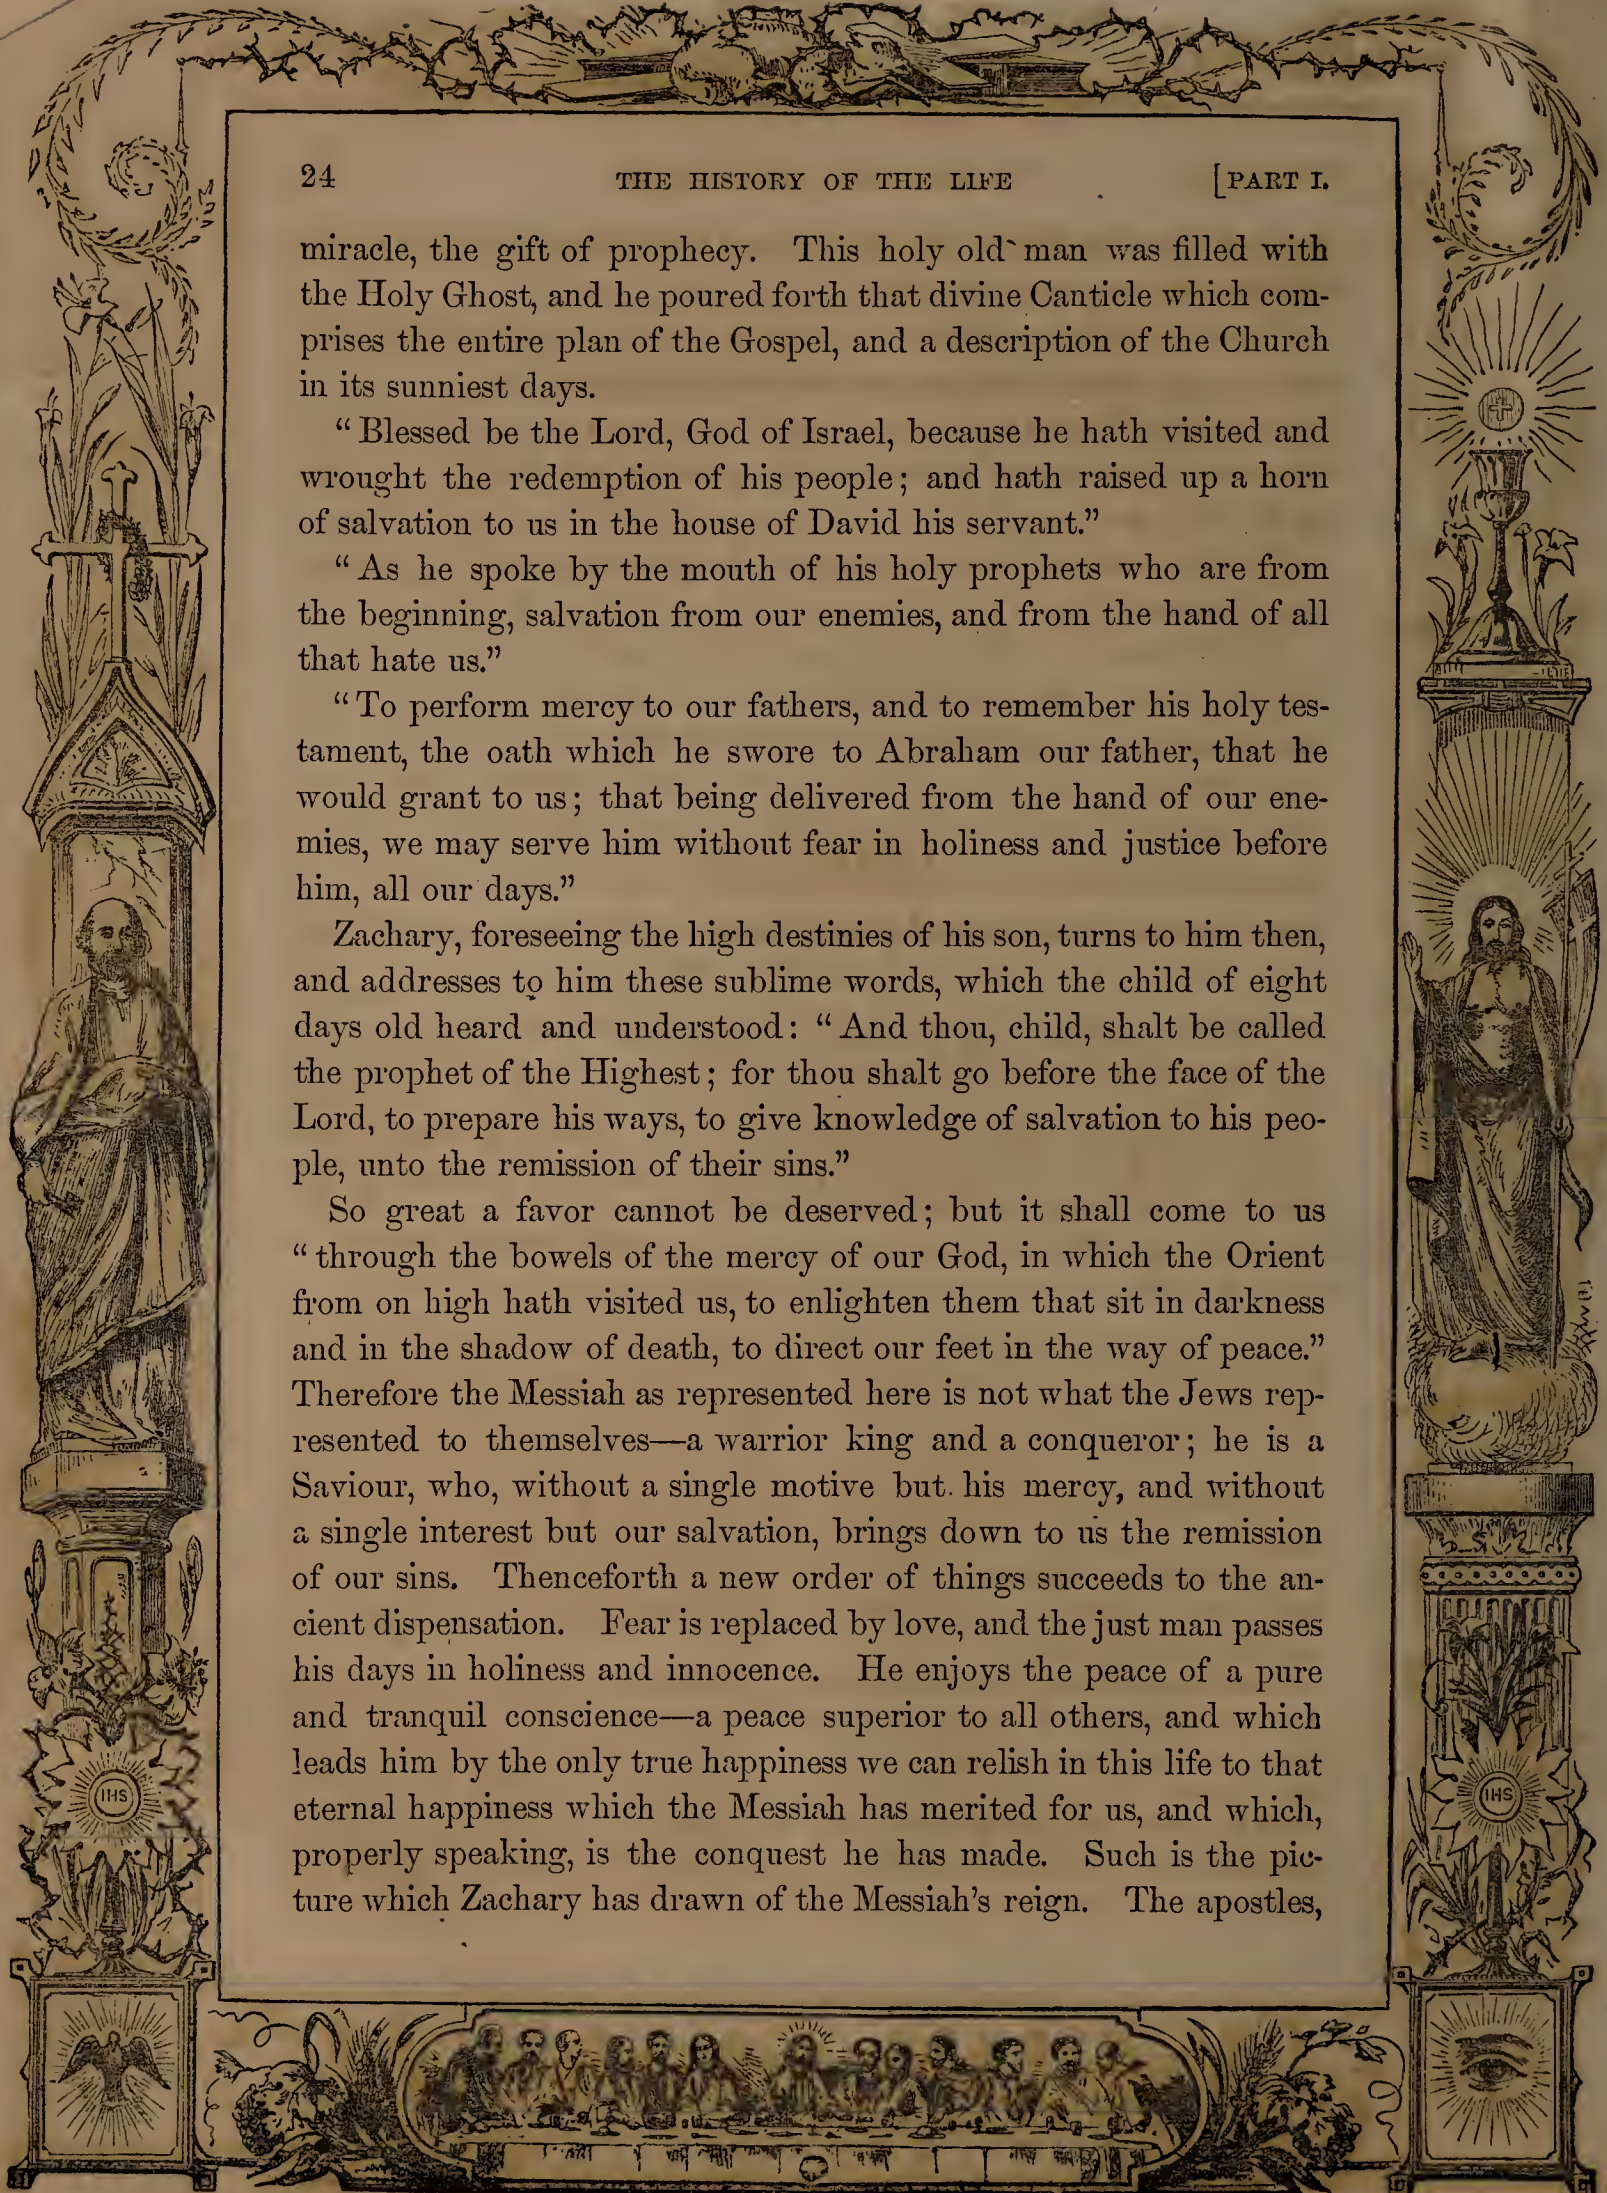 24 THE HISTORY OF THE LIFE [PART I.
miracle, the gift of prophecy. This holy old man was filled with
the Holy Ghost, and he poured forth that divine Canticle which com-
prises the entire plan of the Gospel, and a description of the Church
in its sunniest days.
“Blessed be the Lord, God of Israel, because he hath visited and
wrought the redemption of his people; and hath raised up a horn
of salvation to us in the house of David his servant.”
“As he spoke by the mouth of his holy prophets who are from
the beginning, salvation from our enemies, and from the hand of all
that hate us.”
“To perform mercy to our fathers, and to remember his holy tes-
tament, the oath which he swore to Abraham our father, that he
would grant to us; that being delivered from the hand of our ene-
mies, we may serve him without fear in holiness and justice before
him, all our days.”
Zachary, foreseeing the high destinies of his son, turns to him then,
and addresses to him these sublime words, which the child of eight
days old heard and understood: “And thou, child, shalt be called
the prophet of the Highest; for thou shalt go before the face of the
Lord, to prepare his ways, to give knowledge of salvation to his peo-
ple, unto the remission of their sins.”
So great a favor cannot be deserved; but it shall come to us
“through the bowels of the mercy of our God, in which the Orient
from on high hath visited us, to enlighten them that sit in darkness
and in the shadow of death, to direct our feet in the way of peace.”
Therefore the Messiah as represented here is not what the Jews rep-
resented to themselves—a warrior king and a conqueror; he is a
Saviour, who, without a single motive but his mercy, and without
a single interest but our salvation, brings down to us the remission
of our sins. Thenceforth a new order of things succeeds to the an-
cient dispensation. Fear is replaced by love, and the just man passes
his days in holiness and innocence. He enjoys the peace of a pure
and tranquil conscience—a peace superior to all others, and which
leads him by the only true happiness we can relish in this life to that
eternal happiness which the Messiah has merited for us, and which,
properly speaking, is the conquest he has made. Such is the pic-
ture which Zachary has drawn of the Messiah’s reign. The apostles,
IHS
IHS